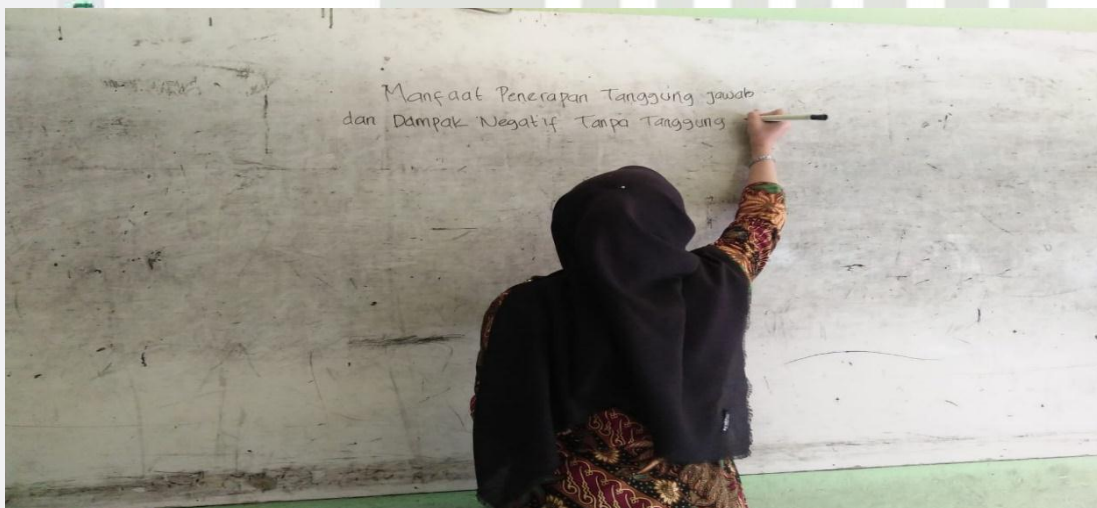 Manfaat Penerapan Tanggung jawab
dan Dampak Negatif Tanpa Tanggung